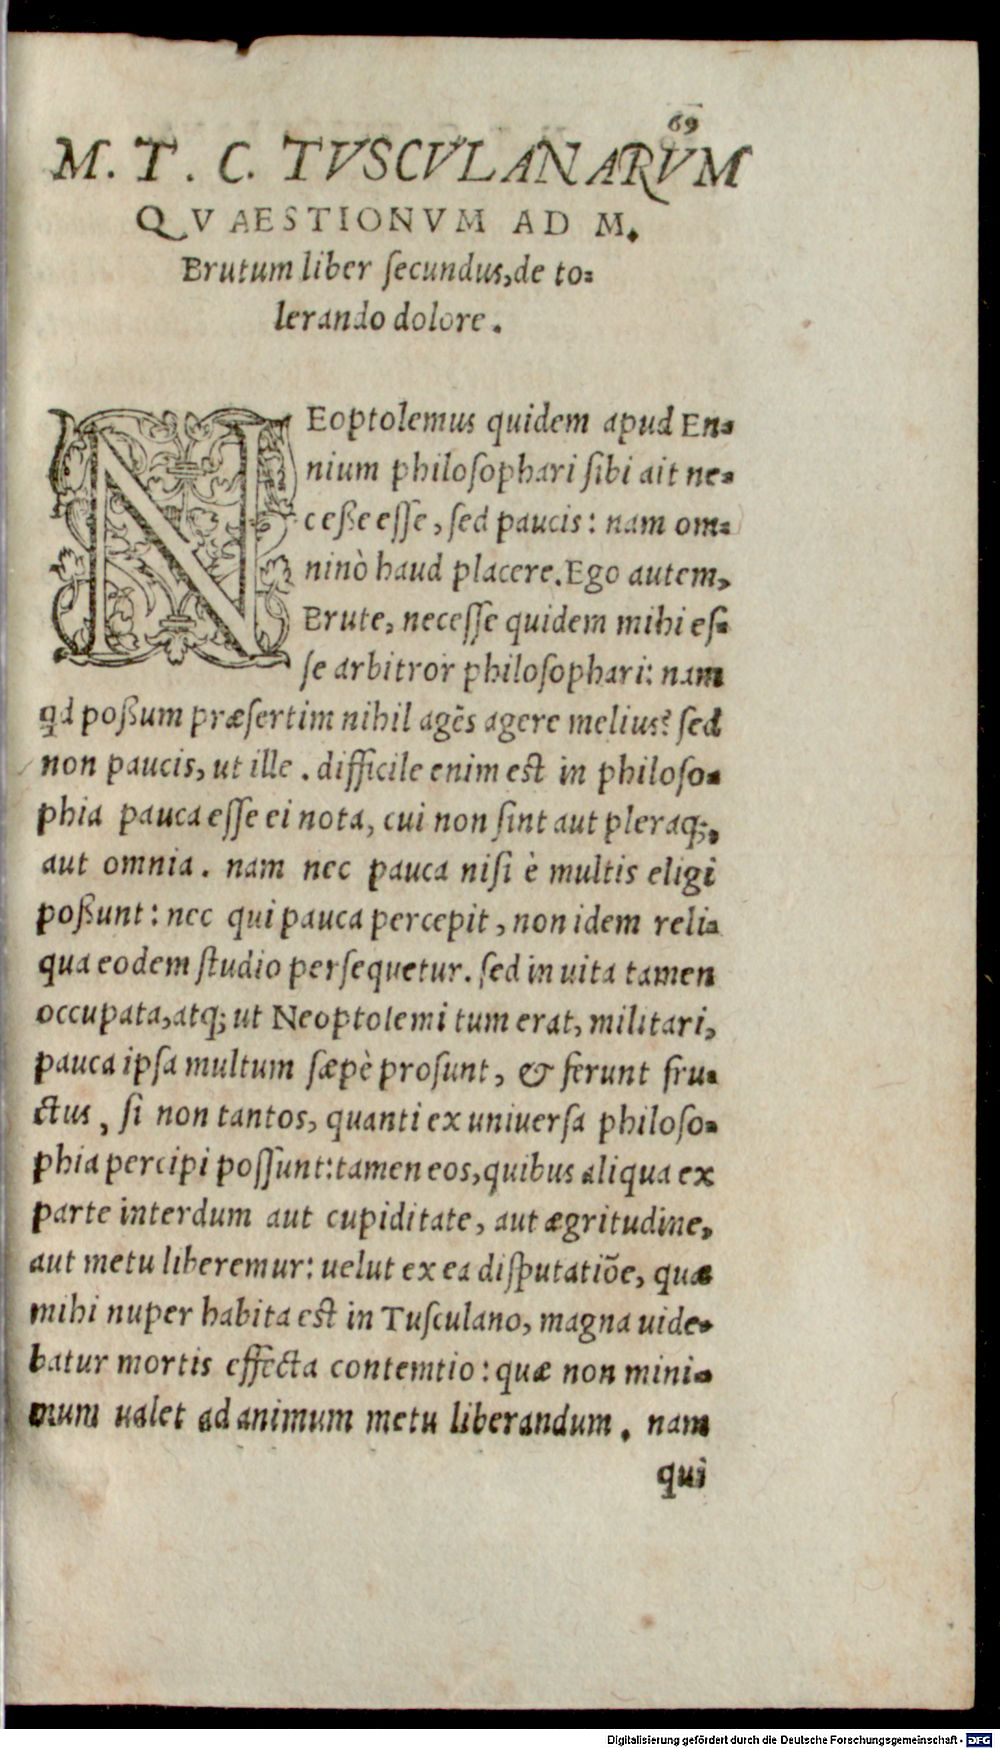 69
M. T. C. TVSCVLANARVM
QVAESTIONVM AD M.
Brutum liber ſecundus, de to-
lerando dolore.
NEoptolemus quidem apud En-
nium philoſophari ſibi ait ne-
ceße eſſe, ſed paucis: nam om-
ninò haud placere. Ego autem,
Brute, neceſſe quidem mihi eſ-
ſe arbitror philoſophari: nam
qd poßum præſertim nihil agẽs agere melius? ſed
non paucis, ut ille. difficile enim eſt in philoſo-
phia pauca eſſe ei nota, cui non ſint aut pleraq;,
aut omnia. nam nec pauca niſi è multis eligi
poßunt: nec qui pauca percepit, non idem reli-
qua eodem ſtudio perſequetur. ſed in uita tamen
occupata, atq; ut Neoptolemi tum erat, militari,
pauca ipſa multum ſæpè proſunt, & ferunt fru-
ctus, ſi non tantos, quanti ex uniuerſa philoſo-
phia percipi poſſunt: tamen eos, quibus aliqua ex
parte interdum aut cupiditate, aut ægritudine,
aut metu liberemur: uelut ex ea diſputatiõe, quæ
mihi nuper habita eſt in Tuſculano, magna uide-
batur mortis effecta contemtio: quæ non mini-
mum ualet ad animum metu liberandum. nam
qui
Digitalisierung gefördert durch die Deutsche Forschungsgemeinschaft - DFG